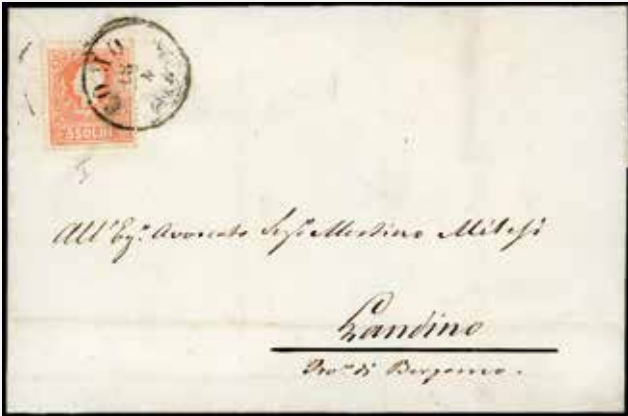 COMO
5 SOLDI
All' Eg.º Avvocato Sigr Martino Milesi
Gandino
Prov.ª di Bergamo.